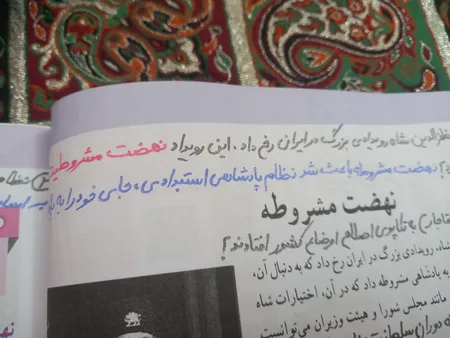 مظفرالدین شاه رویدادی بزرگ در ایران رخ داد. این رویداد نهضت مشروطیت
نهضت مشروطه باعث شد نظام پادشاهی استبدادی، جای خود را به
نهضت مشروطه
به تکاپوی اصلاح اوضاع کشور افتادند؟
شاه، رویدادی بزرگ در ایران رخ داد که به دنبال آن،
به پادشاهی مشروطه داد که در آن، اختیارات شاه
مانند مجلس شورا و هیئت وزیران می‌توانست
دوران سلطنت